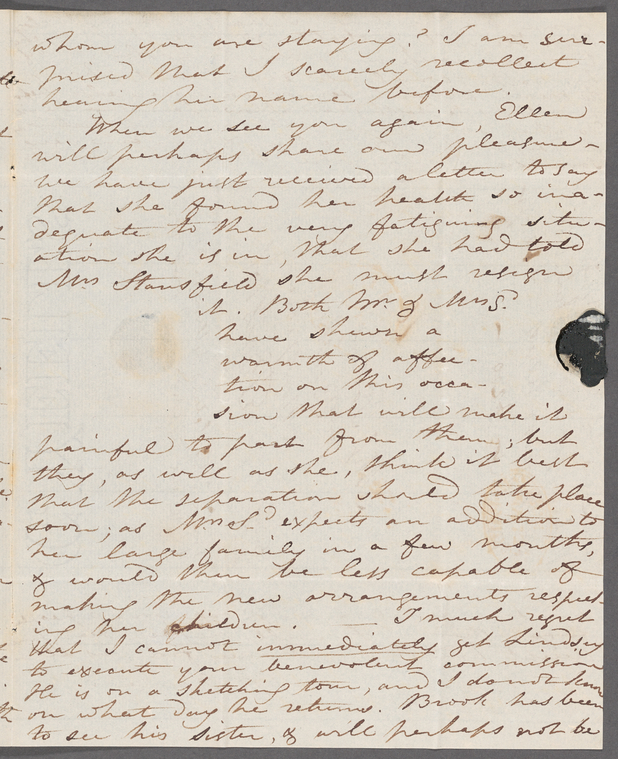 whom you are staying? I am sur-
prised that I scarcely recollect
hearing her name before.
When we see you again, Ellen
will perhaps share our pleasure—
we have just received a letter to say
that she found her health so ina-
dequate to the very fatiguing situ-
ation she is in, that she had told
Mrs Stansfield she must resign
it. Both Mr. & Mrs S.
have shewn a
warmth of affec-
tion on this occa-
sion that will make it
painful to part from them; but
they, as well as she, think it best
that the separation should take place
soon; as Mrs Sd. expects an addition to
her large family in a few months,
& would then be less capable of
making the new arrangements respect-
ing her children. — I much regret
that I cannot immediately get Lindsey
to execute your benevolent commission
He is on a sketching tour, and I do not know
on what day he returns. Brook has been
to see his sister, & will perhaps not be